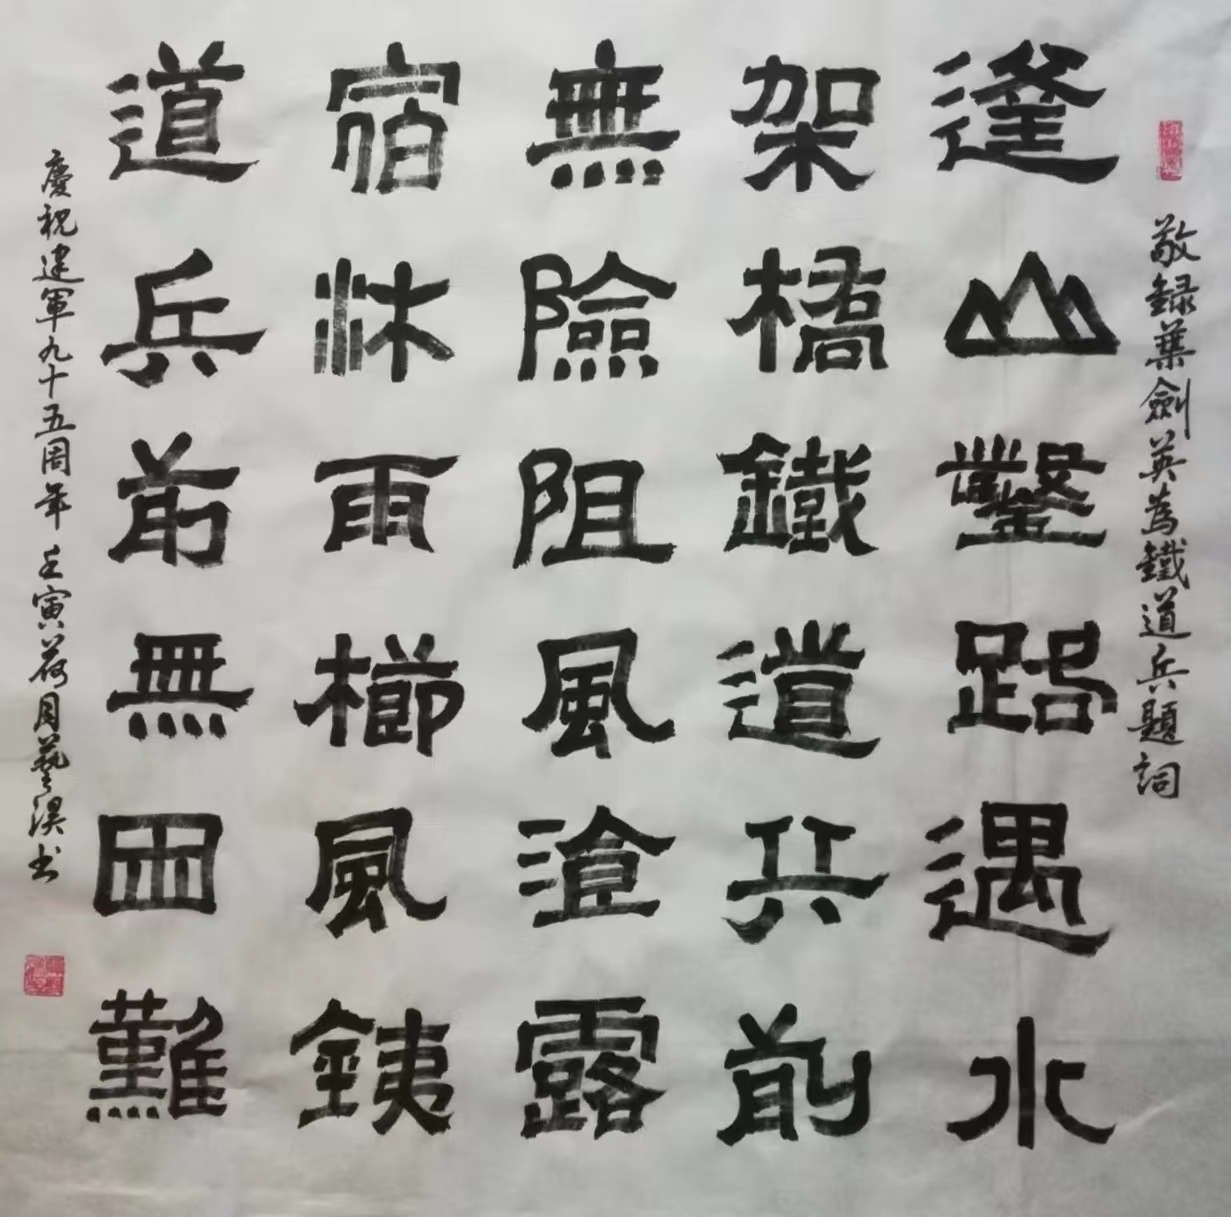 敬録葉劍英為鐵道兵題詞
逢山鑿路遇水
架橋鐵道兵前
無險阻風湌露
宿沐雨櫛風銕
道兵前無困難
慶祝建軍九十五周年 壬寅荷月藝淏书